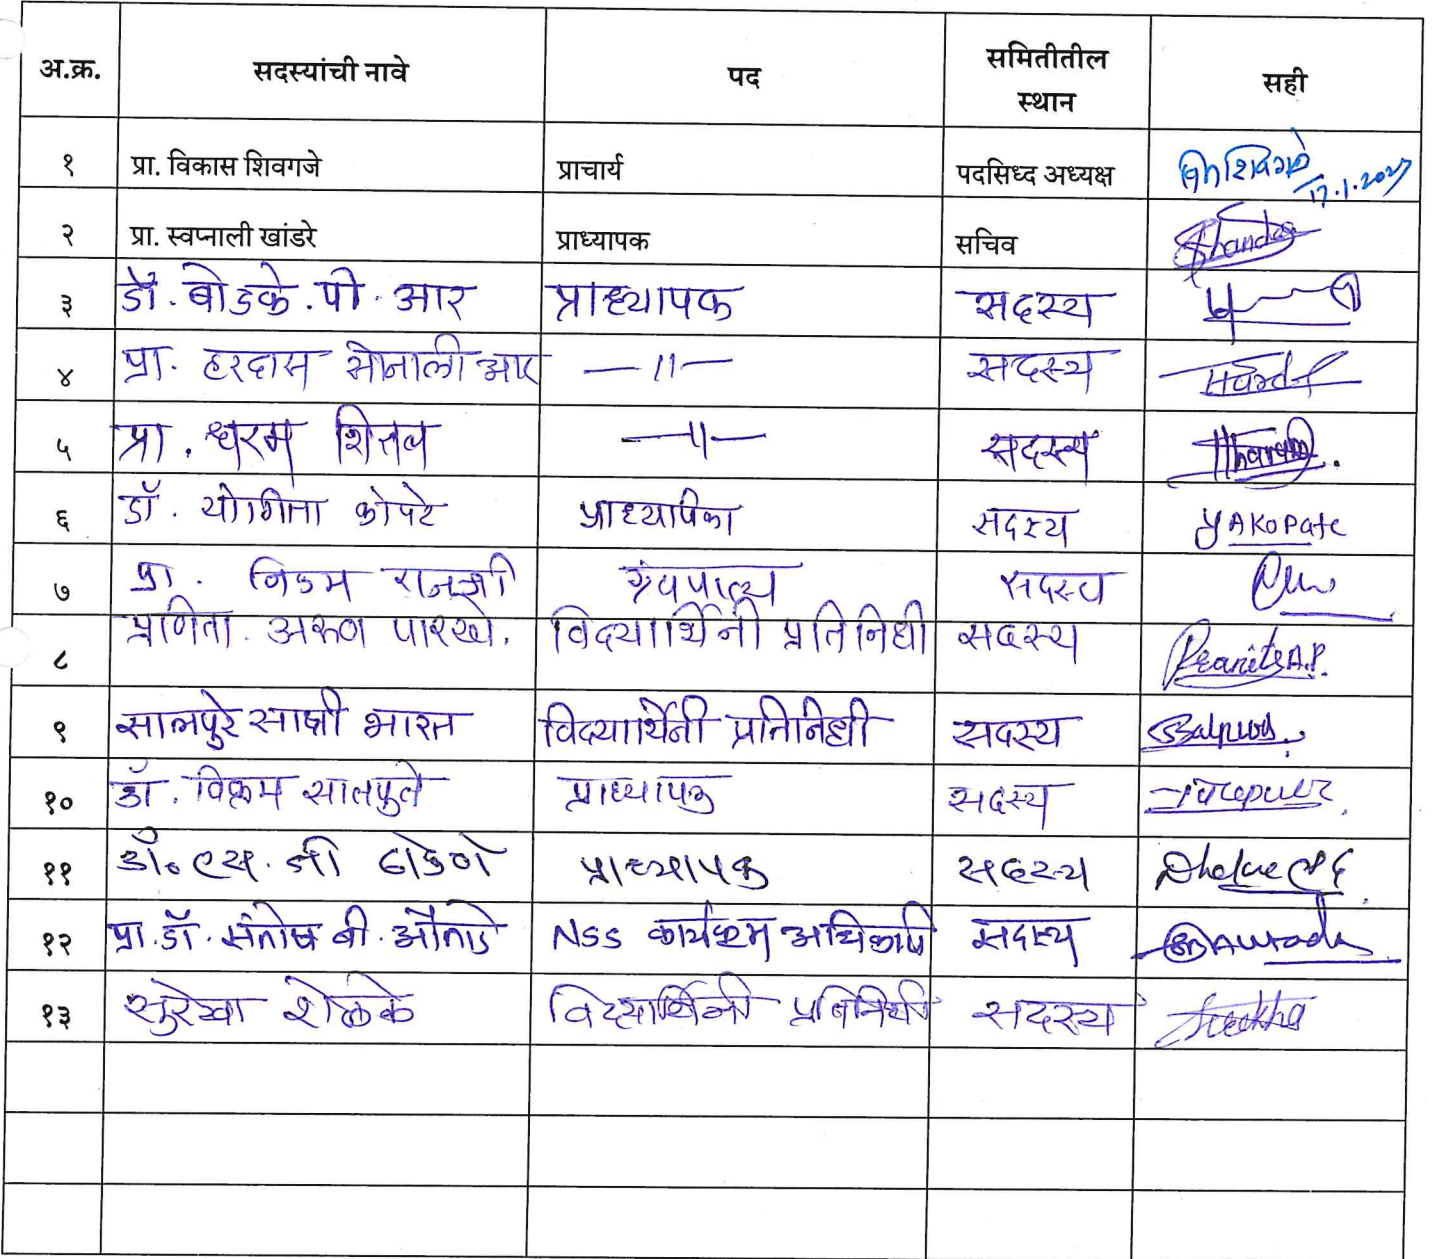 अ.क्र. सदस्यांची नावे पद समितीतील स्थान सही
१ प्रा. विकास शिवगजे प्राचार्य पदसिध्द अध्यक्ष
२ प्रा. स्वप्नाली खांडरे प्राध्यापक सचिव
३ डॉ. बोडके. पी. आर प्राध्यापक सदस्य
४ प्रा. हरदास सोनाली आर —11— सदस्य
५ प्रा. धरम शितल —11— सदस्य
६ डॉ. योगिता कोपटे प्राध्यापिका सदस्य YAKopate
७ प्रा. निकम ग्रंथपाल सदस्य
८ प्रणिता. अरुण पारखे. विद्यार्थिनी प्रतिनिधी सदस्य Pranita A.P.
९ सालपुरे साक्षी भारत विद्यार्थिनी प्रतिनिधी सदस्य Salpure
१० डॉ. विक्रम सातपुते प्राध्यापक सदस्य
११ डॉ. एस. जी ढाकणे प्राध्यापक सदस्य
१२ प्रा. डॉ. संतोष बी. औताडे NSS कार्यक्रम अधिकारी सदस्य
१३ सुरेखा शेळके विद्यार्थिनी प्रतिनिधी सदस्य Surekha